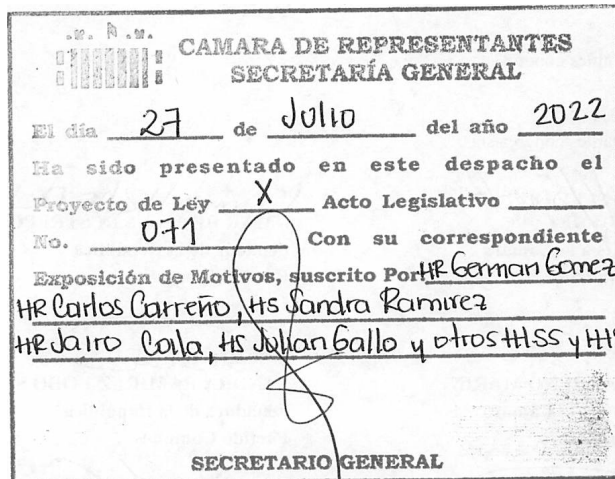 CAMARA DE REPRESENTANTES
SECRETARÍA GENERAL
El día 27 de Julio del año 2022
Ha sido presentado en este despacho el
Proyecto de Ley X Acto Legislativo
No. 071 Con su correspondiente
Exposición de Motivos, suscrito Por: HR German Gomez
HR Carlos Carreño, HS Sandra Ramirez
HR Jairo Cala, HS Julian Gallo y otros HHSS y
SECRETARIO GENERAL